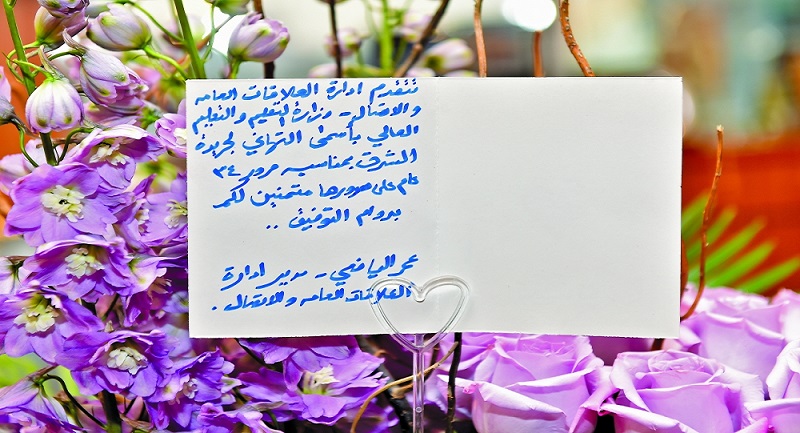 تتقدم ادارة العلاقات العامه
والاتصال - وزارة التعليم والتعليم
العالي بأسمى التهاني لجريدة
الشرق بمناسبه مرور ٣٤
عام على صدورها متمنين لكم
بدوام التوفيق ..
عمر اليافعي - مدير ادارة
العلاقات العامه والاتصال .